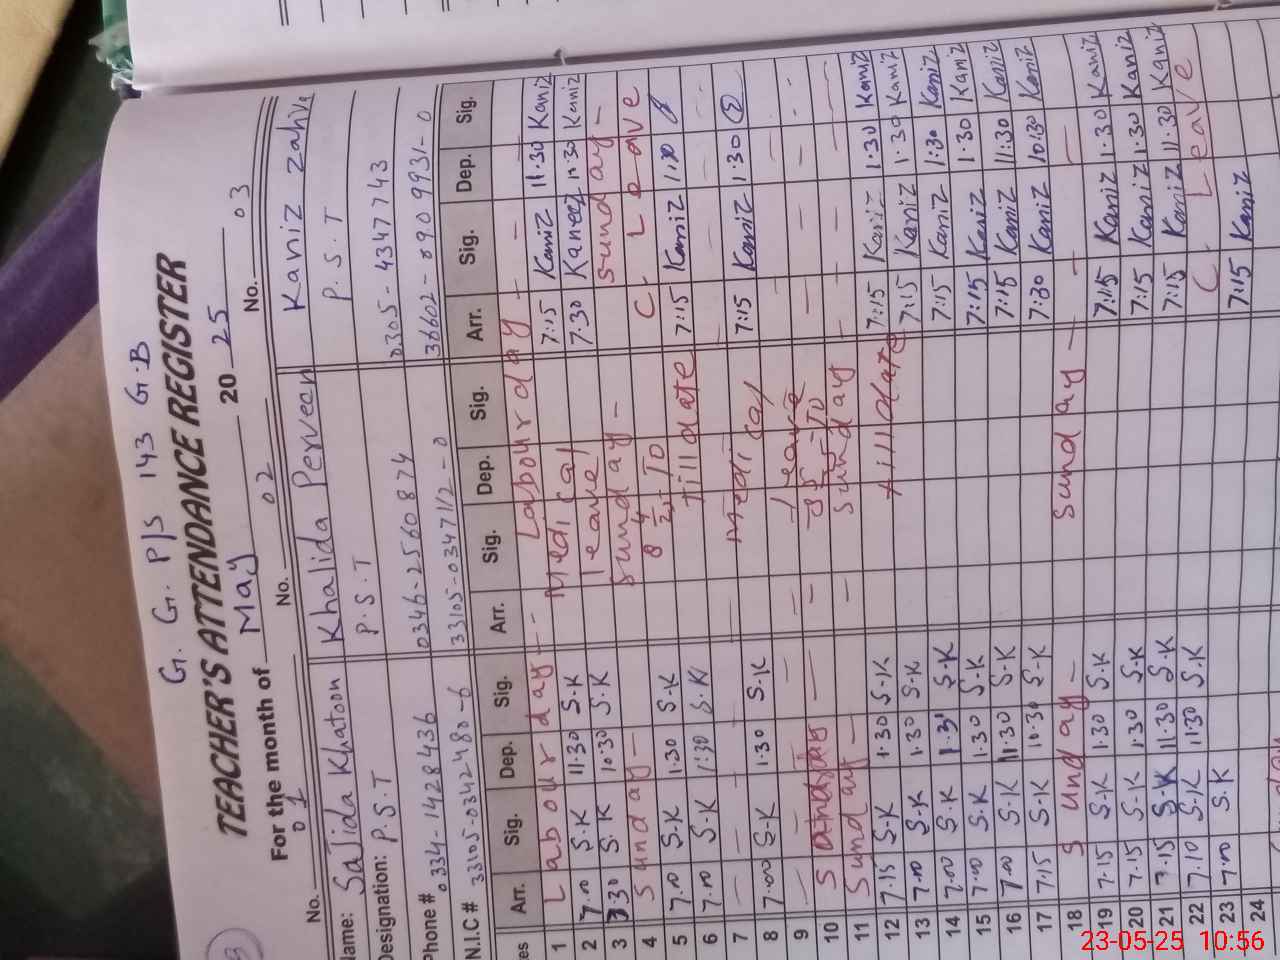 G. G. P/S 143 G.B
TEACHER'S ATTENDANCE REGISTER
For the month of May 20 25
No. 01 No. 02 No. 03
Name: Sajida Khatoon Khalida Perveen Kaniz Zahra
Designation: P.S.T P.S.T P.S.T
Phone # 0334-1428436 0346-2560874 0305-4347743
N.I.C # 33105-0342480-6 33105-0347112-0 36602-0909931-0
Arr. Sig. Dep. Sig. Arr. Sig. Dep. Sig. Arr. Sig. Dep. Sig.
1 Labour day Labour day
2 7.00 S.K 11:30 S.K Medical 7:15 Kaniz 11:30 Kaniz
3 7.30 S.K 10:30 S.K leave 7:30 Kaneez 10:30 Kaniz
4 Sunday Sunday Sunday
5 7.00 S.K 1.30 S.K C Leave
6 7.00 S.K 1:30 S.K till date 7:15 Kaniz 1:30
7
8 7.00 S.K 1.30 S.K Medical 7:15 Kaniz 1:30
9 leave
10
11 Sunday Sunday
12 7.15 S.K 1.30 S.K till date 7:15 Kaniz 1.30 Kaniz
13 7.00 S.K 1.30 S.K 7:15 Kaniz 1.30 Kaniz
14 7.00 S.K 1.3 S.K 7:15 Kaniz 1:30 Kaniz
15 7.00 S.K 1.30 S.K 7:15 Kaniz 1.30 Kaniz
16 7.00 S.K 11:30 S.K 7:15 Kaniz 11:30 Kaniz
17 7.15 S.K 10:30 S.K 7:30 Kaniz 10:30 Kaniz
18 Sunday Sunday
19 7.15 S.K 1.30 S.K 7:15 Kaniz 1.30 Kaniz
20 7.15 S.K 1.30 S.K 7:15 Kaniz 1:30 Kaniz
21 7.15 S.K 11.30 S.K 7:15 Kaniz 11:30 Kaniz
22 7.10 S.K 11:30 S.K C Leave
23 7.00 S.K 7:15 Kaniz
24
23-05-25 10:56